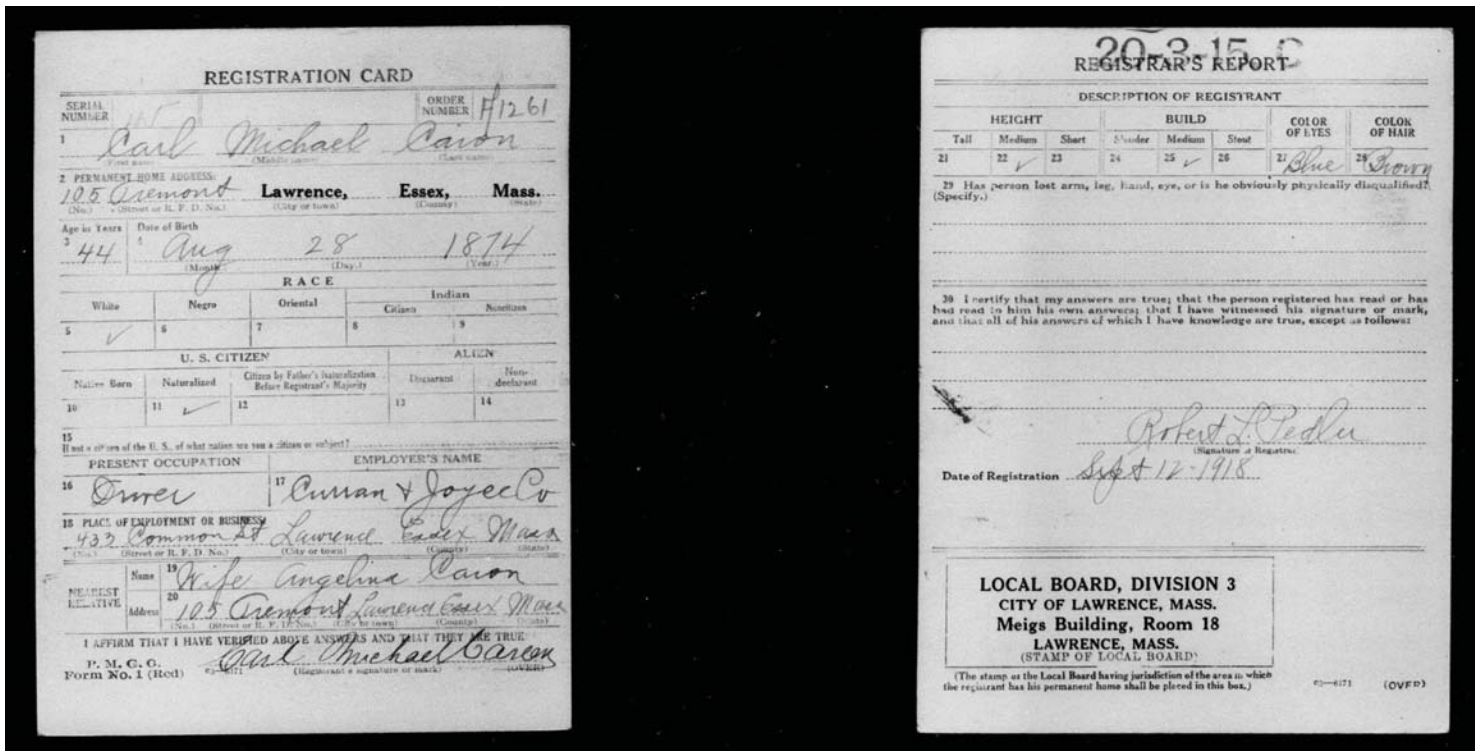 REGISTRATION CARD
SERIAL NUMBER ORDER NUMBER A1261
1 Carl Michael Caron
(First name) (Middle name) (Last name)
2 PERMANENT HOME ADDRESS:
105 Tremont Lawrence, Essex, Mass.
(No.) (Street or R. F. D. No.) (City or town) (County) (State)
Age in Years Date of Birth
3 44 4 Aug 28 1874
(Month.) (Day.) (Year.)
RACE
White Negro Oriental Indian
Citizen Noncitizen
5 ✓ 6 7 8 9
U. S. CITIZEN ALIEN
Native Born Naturalized Citizen by Father's Naturalization Before Registrant's Majority Declarant Non-declarant
10 11 ✓ 12 13 14
15
If not a citizen of the U. S., of what nation are you a citizen or subject?
PRESENT OCCUPATION EMPLOYER'S NAME
16 Driver 17 Curran & Joyce Co
18 PLACE OF EMPLOYMENT OR BUSINESS:
433 Common St Lawrence Essex Mass
(No.) (Street or R. F. D. No.) (City or town) (County) (State)
NEAREST RELATIVE
Name 19 Wife Angelina Caron
Address 20 105 Tremont Lawrence Essex Mass
(No.) (Street or R. F. D. No.) (City or town) (County) (State)
I AFFIRM THAT I HAVE VERIFIED ABOVE ANSWERS AND THAT THEY ARE TRUE
P. M. G. O.
Form No. 1 (Red) 03—6171 Carl Michael Careen
(Registrant's signature or mark) (OVER)
20-3-15 C
REGISTRAR'S REPORT
DESCRIPTION OF REGISTRANT
HEIGHT BUILD COLOR OF EYES COLOR OF HAIR
Tall Medium Short Slender Medium Stout
21 22 ✓ 23 24 25 ✓ 26 27 Blue 28 Brown
29 Has person lost arm, leg, hand, eye, or is he obviously physically disqualified?
(Specify.)
30 I certify that my answers are true; that the person registered has read or has
had read to him his own answers; that I have witnessed his signature or mark,
and that all of his answers of which I have knowledge are true, except as follows:
Robert L. Pedler
(Signature of Registrar)
Date of Registration Sept 12-1918
LOCAL BOARD, DIVISION 3
CITY OF LAWRENCE, MASS.
Meigs Building, Room 18
LAWRENCE, MASS.
(STAMP OF LOCAL BOARD)
(The stamp of the Local Board having jurisdiction of the area in which
the registrant has his permanent home shall be placed in this box.)
03—6171 (OVER)